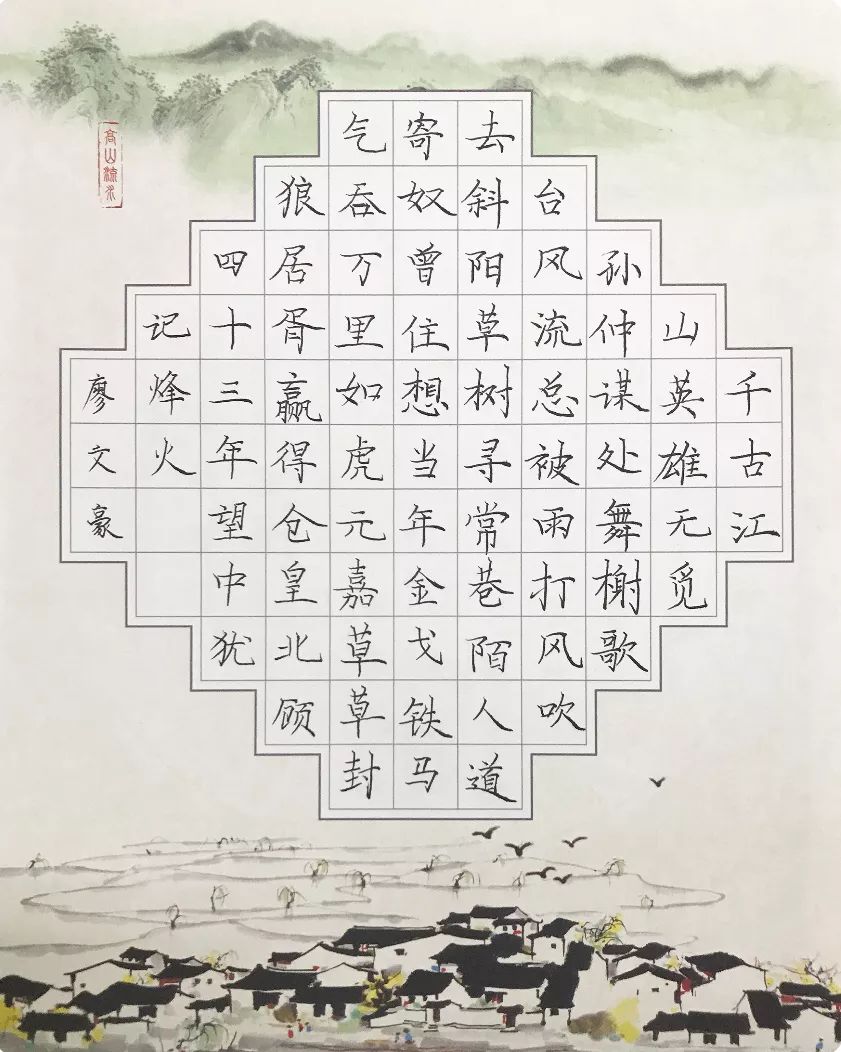 千古江
山英雄无觅
孙仲谋处舞榭歌
台风流总被雨打风吹
去斜阳草树寻常巷陌人道
寄奴曾住想当年金戈铁马
气吞万里如虎元嘉草草封
狼居胥赢得仓皇北顾
四十三年望中犹
记烽火
廖文豪
高山流水